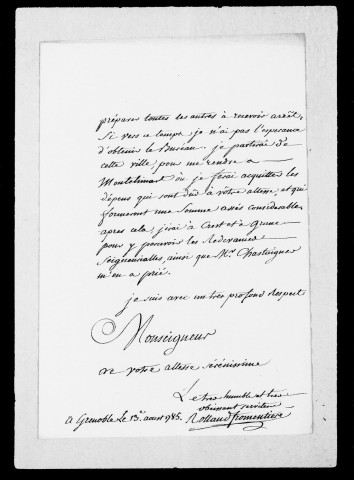 préparer toutes les autres à recevoir arrêt,
si vers ce temps, je n'ai pas l'esperance
d'obtenir le Bureau. je partirai de
cette ville, pour me rendre a
Montelimart ou je ferai acquitter les
dépens qui sont dûs à votre altesse, et qui
formeront une somme assés considerable,
apres cela, j'irai à Crest et à Grane
pour y percevoir les Redevances
Seigneurialles, ainsi que Mr. Chastaignez
m'en a prié.
je suis avec un très profond respect
Monseigneur
De votre altesse sérénissime
Le très humble et très
obéissant serviteur
a Grenoble le 13e. aoust 1785. Rolland fromentiere